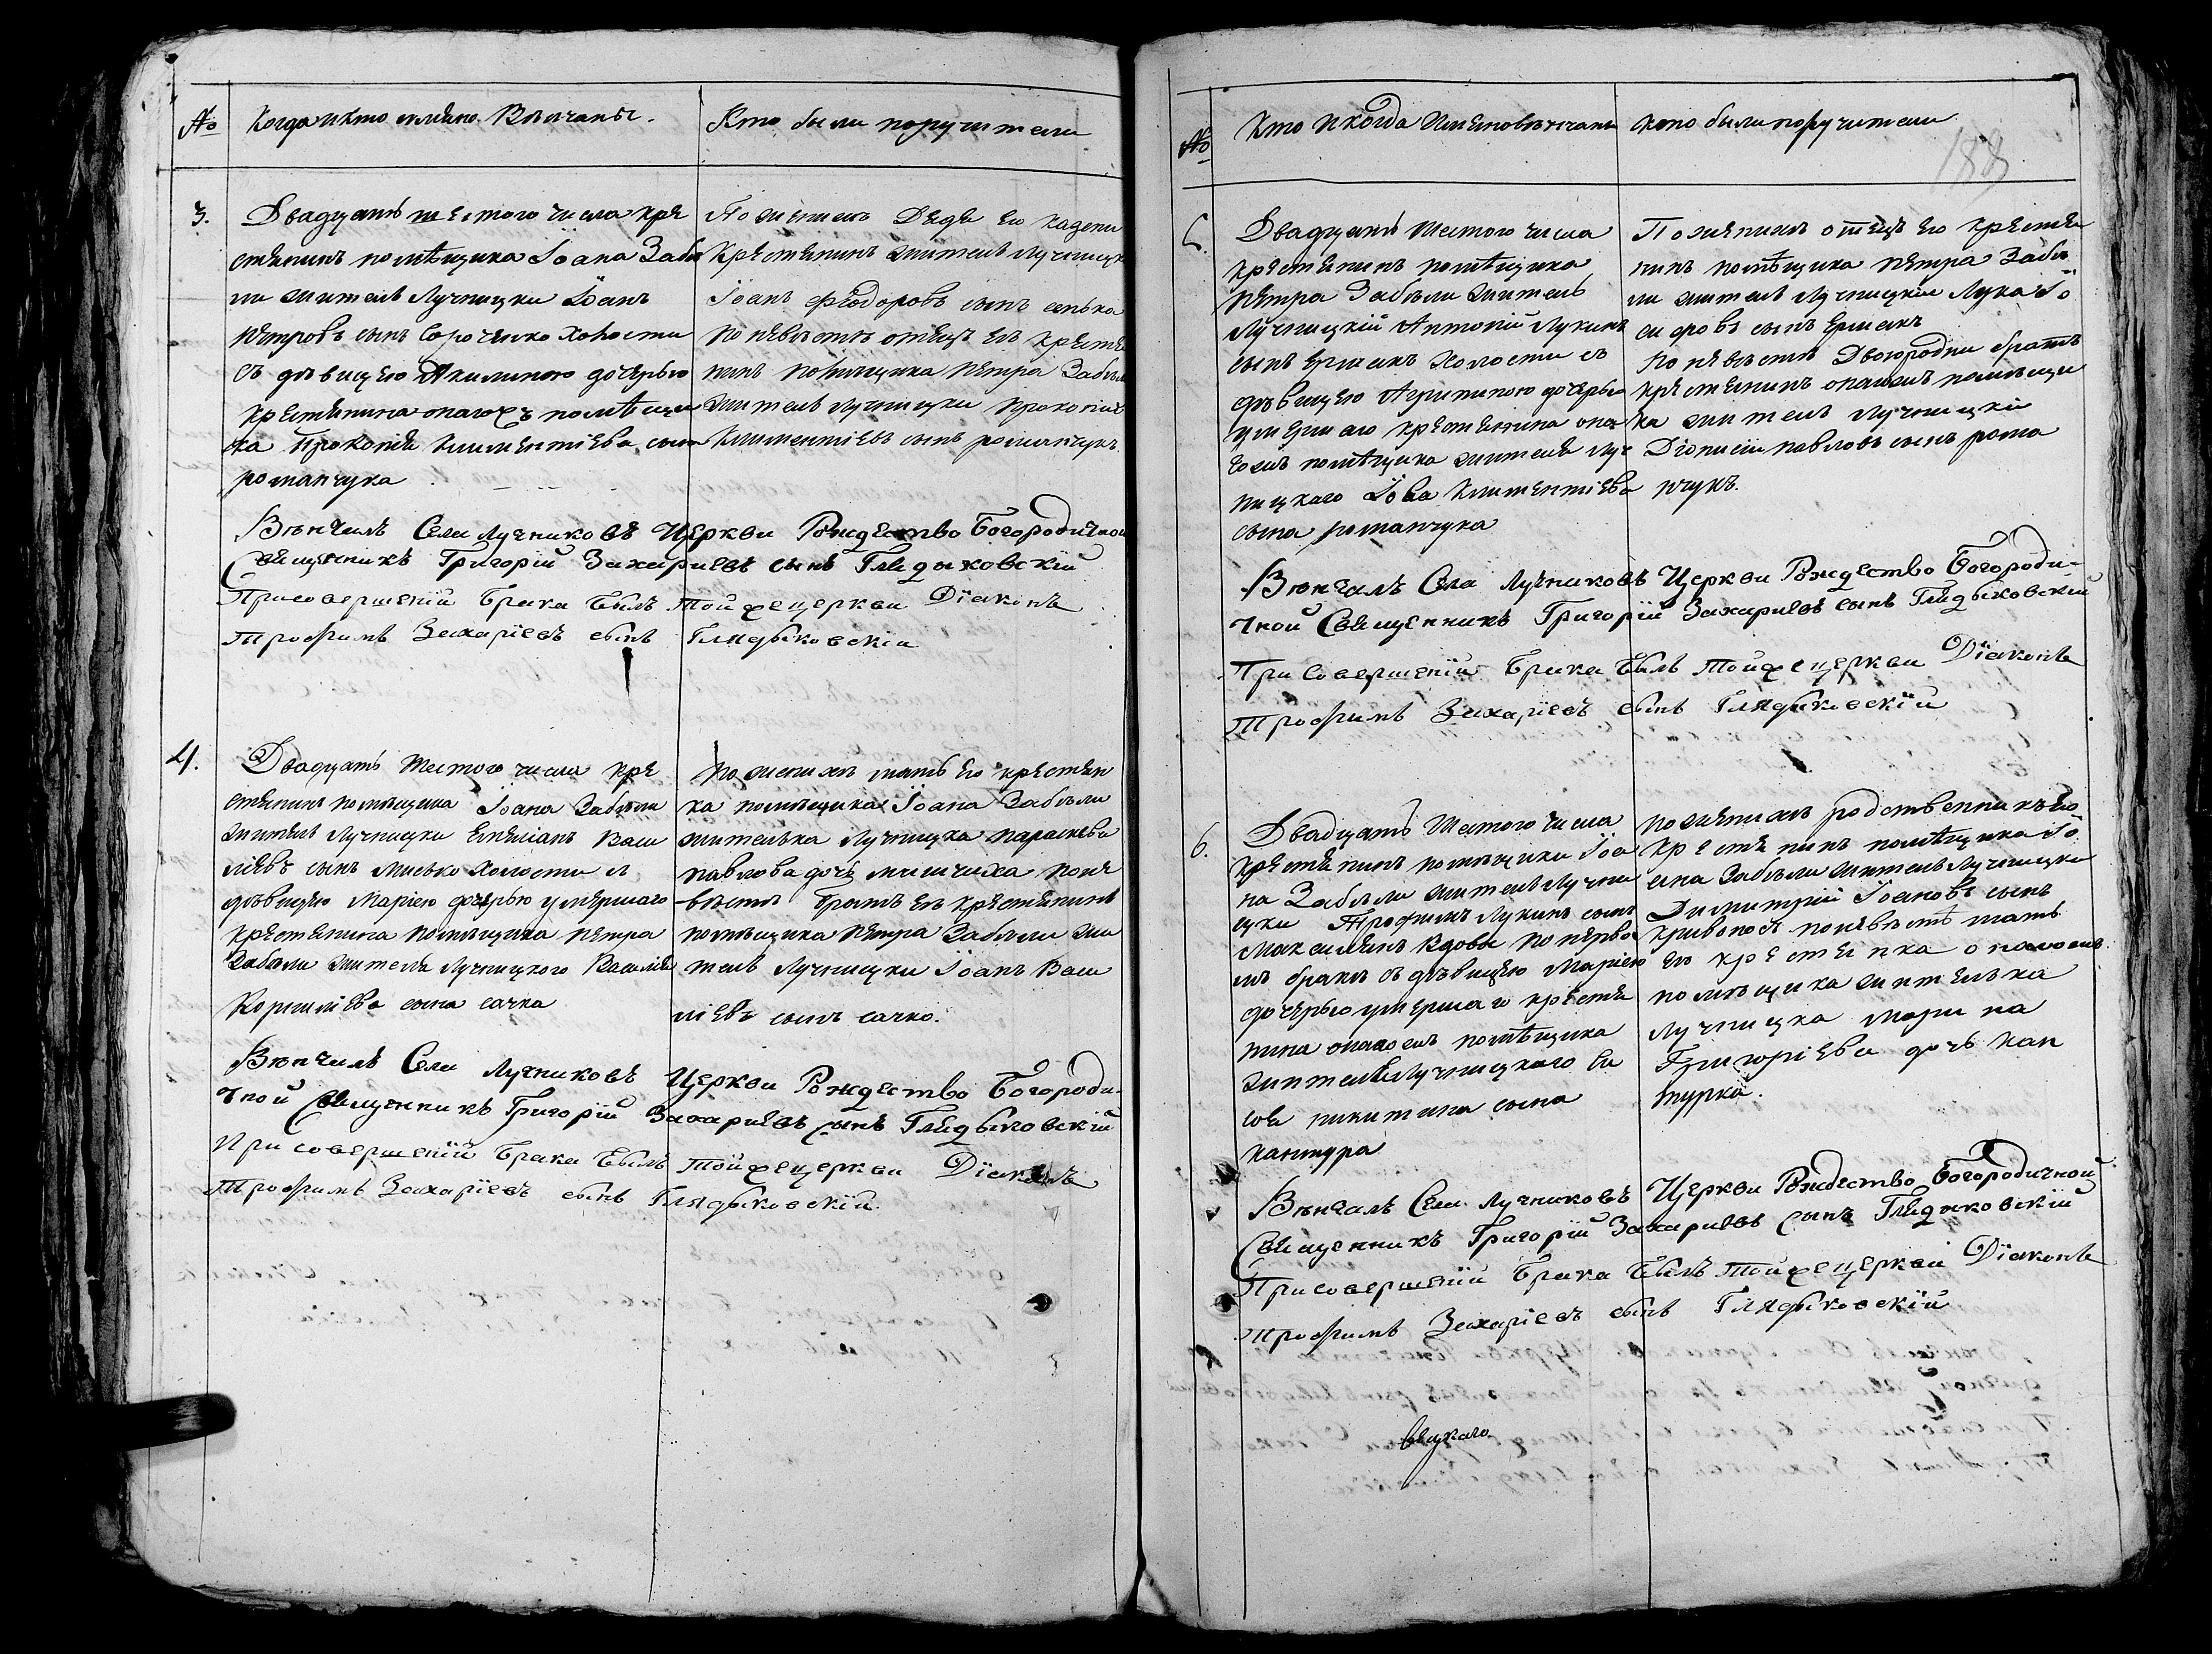 № Когда и кто имяно Венчаны.
Кто были поручители
3. Двадцать шестого числа кре
стянинъ помѣщика Іоана Забѣ
ли житель Лучницки Іоанъ
Петровъ сынъ Сороченко Холости
съ дѣвицею Акилиною дочерью
крестянина онагожъ помѣщи
ка Прокопія Климентіева сына
романчука
По женихѣ Дедъ его казени
крестянинъ житель лучницк
Іоанъ Феодоровъ сынъ сенько
по невѣстѣ отецъ еѣ крестя
нинъ помѣщика Петра Забѣл
житель лучницки Прокопіи
Климентіевъ сынъ романчукъ.
Вѣнчалъ Села Лучниковъ Церкви Рождество Богородичной
Священникъ Григорій Захаріевъ сынъ Глядыковскій
При совершеніи Брака былъ той же церкви Діаконъ
Трофимъ Захаріевъ сынъ Глядыковскіи
4. Двадцать шестого числа кре
стянинъ помѣщика Іоана Забѣли
житель Лучницки Емеліанъ Васи
ліевъ сынъ Мисько Холости съ
дѣвицею Маріею дочерью умершаго
крестянина помѣщика Петра
Забѣли жителя Лучницкого Василія
Корниліева сына сачка
По женихѣ мать его крестян
ка помѣщика Іоана Забѣли
жителька Лучницка параскева
павлова дочь мисчиха по не
вѣстѣ братъ еѣ крестянинъ
помѣщика Петра Забѣли жи
тель Лучницки Іоанъ Васи
ліевъ сынъ сачко.
Вѣнчалъ Села Лучниковъ Церкви Рождество Богороди-
чной Священникъ Григорій Захаріевъ сынъ Глядыковскій
При совершеніи Брака былъ той же церкви Діаконъ
Трофимъ Захаріевъ сынъ Глядыковскіи.
№ Кто и когда Имяно вѣнчаны
Кто были поручители
188
5. Двадцать шестого числа
крестянинъ помѣщика
Петра Забѣли житель
Лучницкій Антоній Лукинъ
сынъ Ермакъ холости съ
дѣвицею Агрипиною дочерью
умершаго крестянина она
гожъ помѣщика жителя Луч
ницкаго Іова Климентіева
сына романчука
По женихѣ отецъ его крестян
нинъ помѣщика Петра Забѣ
ли житель Лучницкіи Лука Іо
сифовъ сынъ Ермакъ
по невѣстѣ Двоюродни братъ
крестянинъ онагожъ помѣщи
ка житель Лучницкіи
Діонисіи павловъ сынъ рома
нчукъ.
Вѣнчалъ Села Лучниковъ Церкви Рождество Богороди-
чной Священникъ Григорій Захаріевъ сынъ Глядыковскій
При совершеніи Брака былъ той же церкви Діаконъ
Трофимъ Захаріевъ сынъ Глядыковскій
6. Двадцать шестого числа
крестянинъ помѣщика Іоа
на Забѣли житель Лучни
цки Трофимъ Лукинъ сынъ
вдовы по перво
мъ бракѣ съ дѣвицею Маріею
дочерью умершаго крестя
нина онагожъ помѣщика
жителя Лучницкаго
никитина сына
кантура
по женихѣ родственникъ его
крестянинъ помѣщика Іо
ана Забѣли житель Лучницки
Димитрій Іоановъ сынъ
кривоносъ по невѣстѣ мать
еѣ крестянка онагожъ
помѣщика жителька
Лучницка Марина
Григоріева дочь кан
турка.
Вѣнчалъ Села Лучниковъ Церкви Рождество Богородичной
Священникъ Григорій Захаріевъ сынъ Глядыковскій
При совершеніи Брака былъ той же церкви Діаконъ
Трофимъ Захаріевъ сынъ Глядыковскій